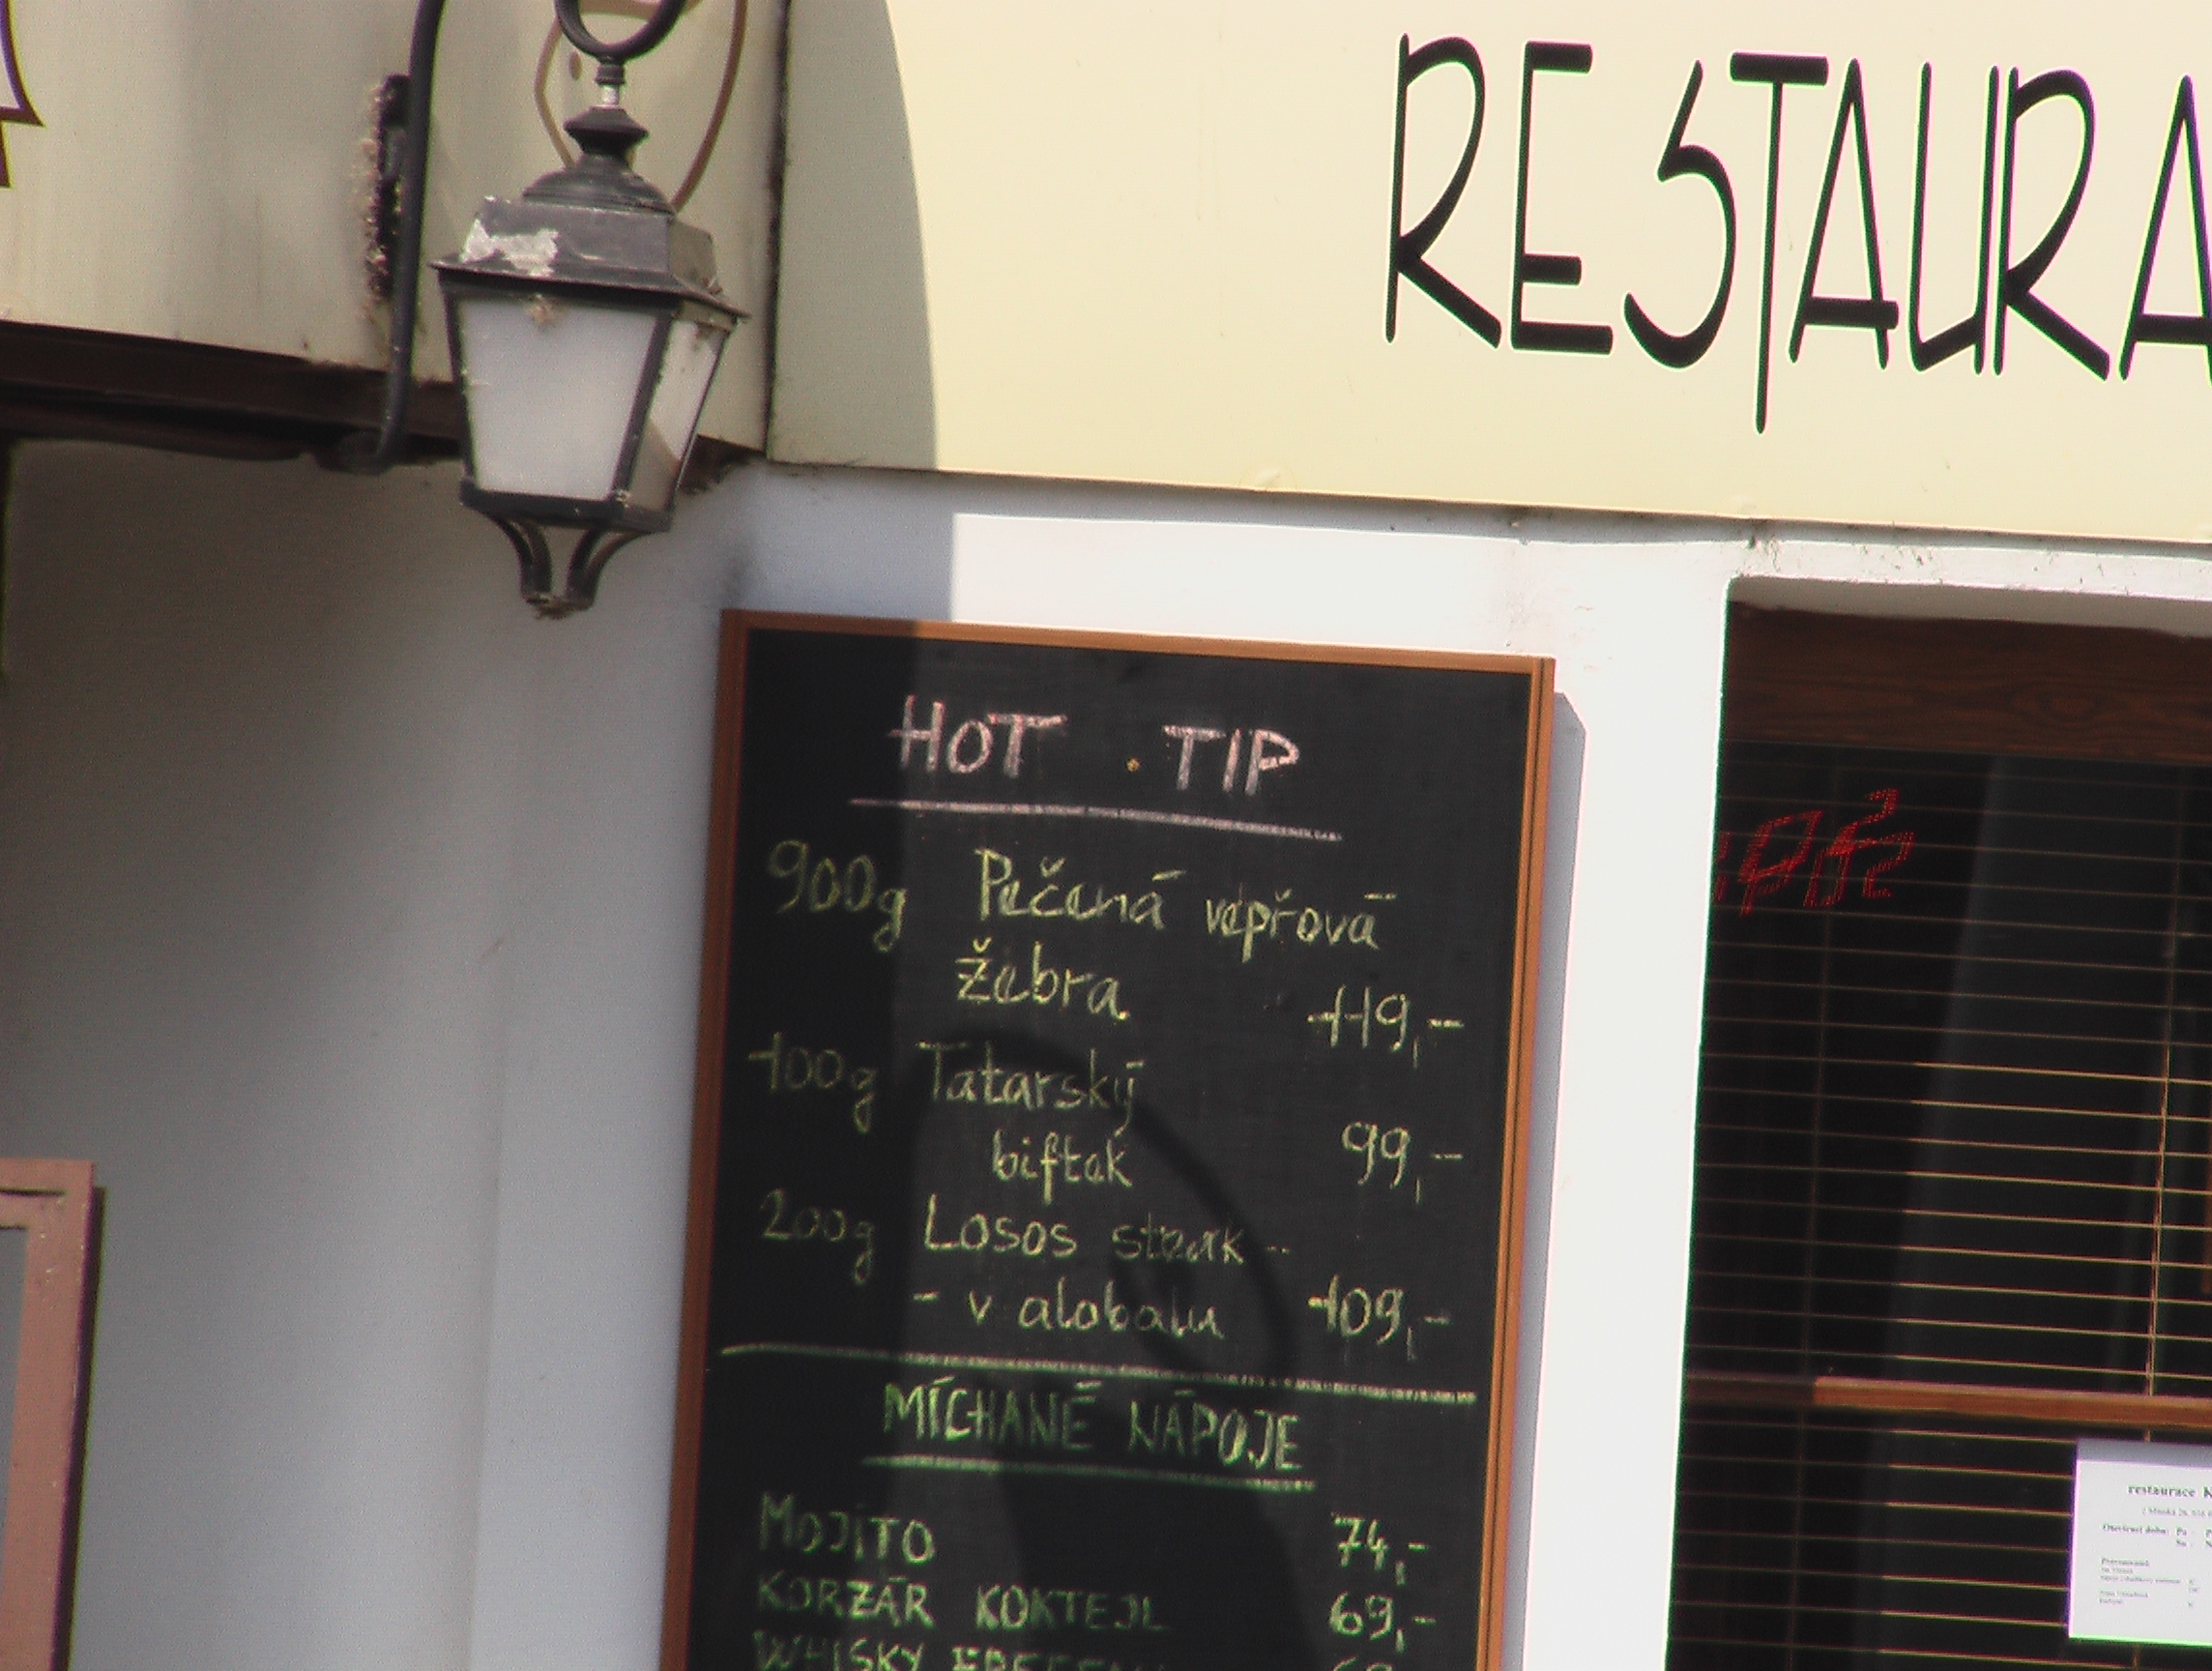 RESTAURA
HOT TIP
900g Pečená vepřová
žebra 119,-
100g Tatarský
biftek 99,-
200g Losos steak -
- v alobalu 109,-
MÍCHANÉ NÁPOJE
MOJITO 74,-
KORZÁR KOKTEJL 69,-
WHISKY
restaurace
Otevírací doba: